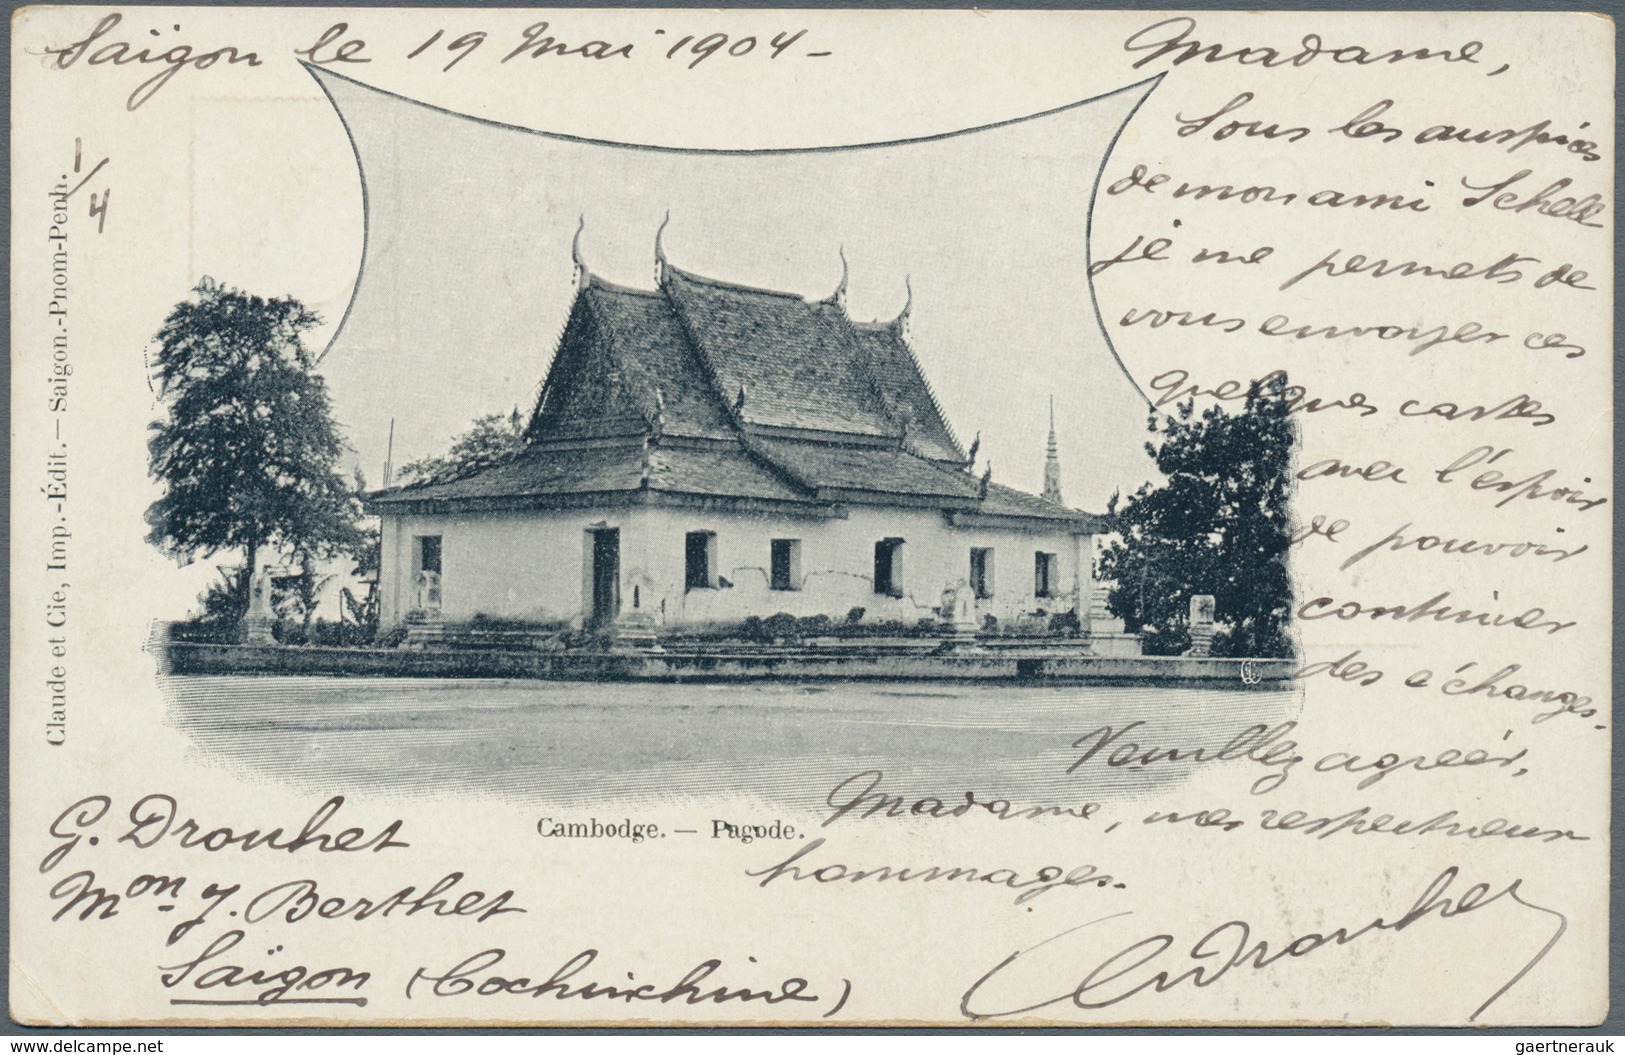 Saïgon le 19 Mai 1904 -
1/4
Madame,
Sous les auspices
de mon ami Schell
je me permets de
vous envoyer ces
quelques cartes
avec l'espoir
de pouvoir
continuer
des échanges.
Veuillez agréer,
Madame, mes respectueux
hommages.
Drouhet
Claude et Cie, Imp.-Édit. — Saigon.-Pnom-Penh.
Cambodge. — Pagode.
G. Drouhet
Mon. J. Berthet
Saïgon (Cochinchine)
www.delcampe.net
gaertnerauk